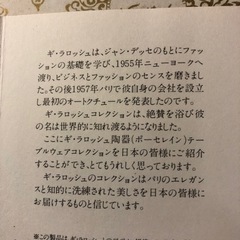 ギ・ラロッシュは、ジャン・デッセのもとにファッ
ションの基礎を学び、1955年ニューヨークへ
渡り、ビジネスとファッションのセンスを磨きまし
た。その後1957年パリで彼自身の会社を設立
し最初のオートクチュールを発表したのです。
ギ・ラロッシュコレクションは、絶賛を浴び彼
の名は世界的に知れ渡るようになりました。
ここにギ・ラロッシュ陶器(ポーセレイン)テー
ブルウェアコレクションを日本の皆様にご紹
介することができ、とてもうれしく思っております。
ギ・ラロッシュのコレクションはパリのエレガン
スと知的に洗練された美しさを日本の皆様に
お届けするものと信じています。
※この製品は